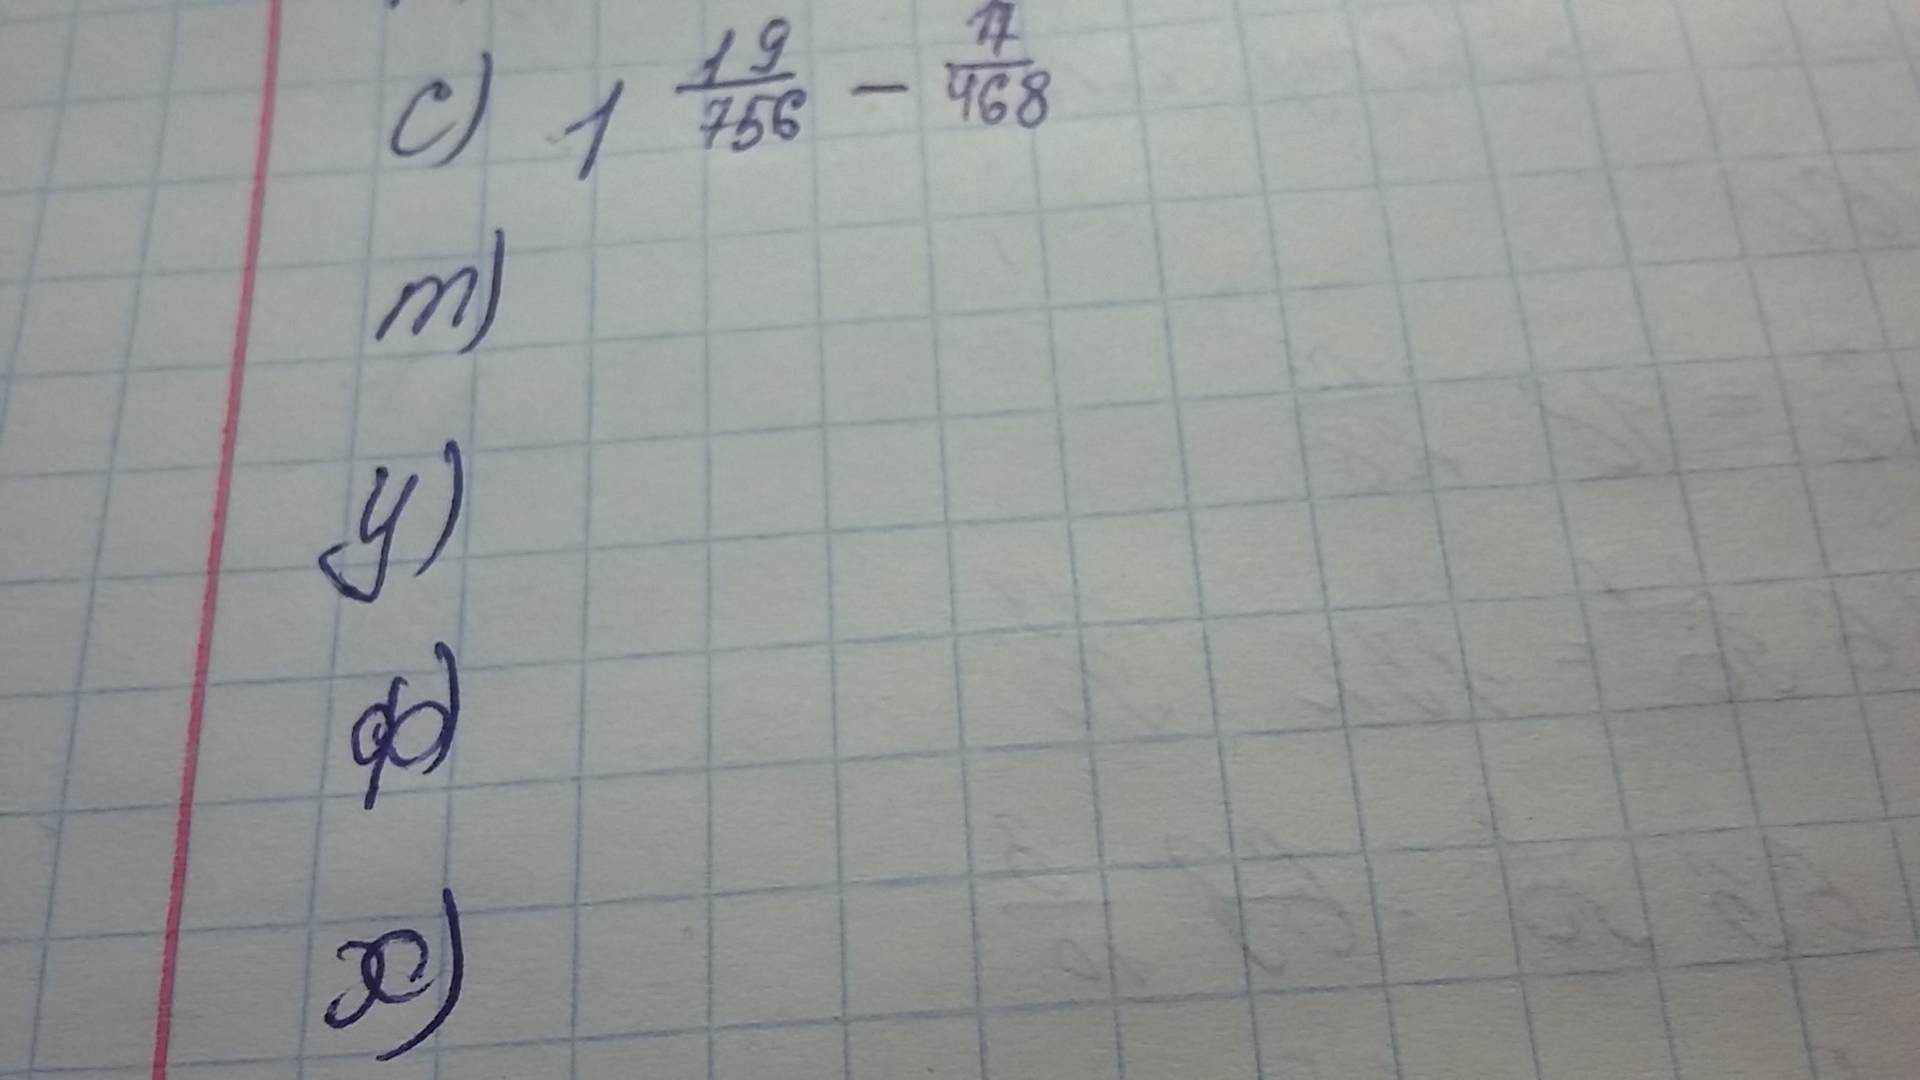 с) 1 19/756 - 17/468
т)
у)
ф)
х)